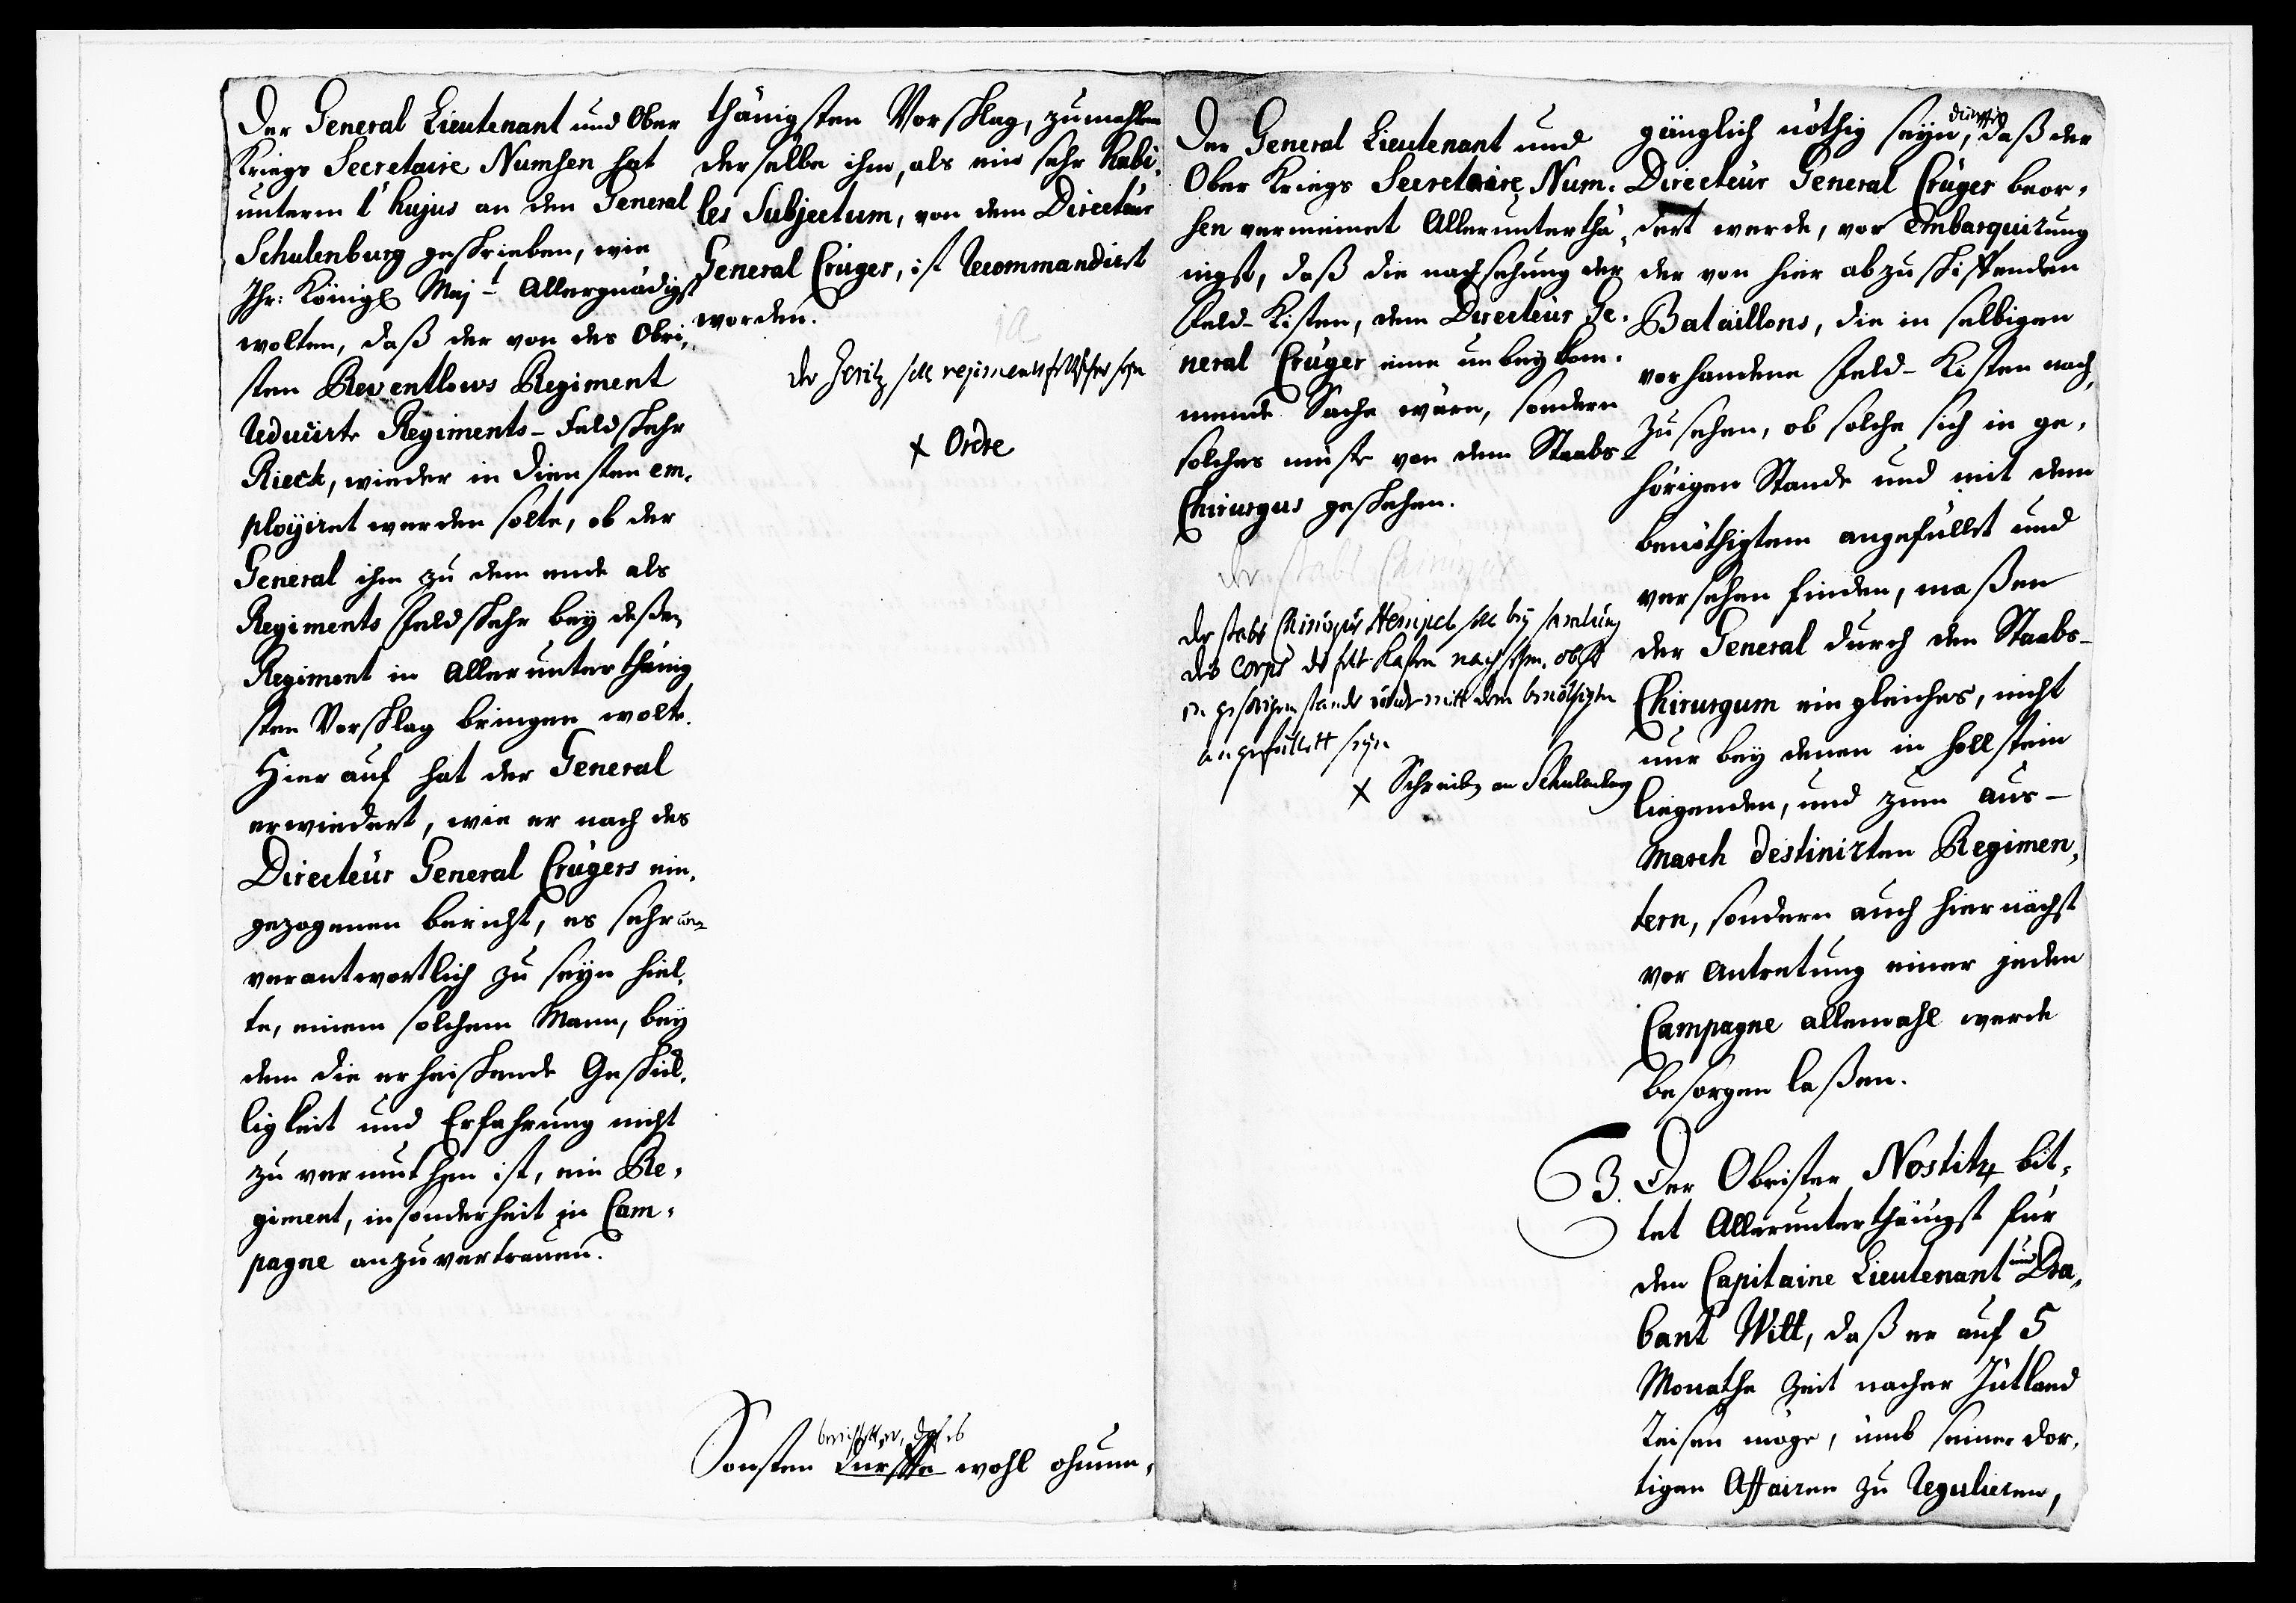 Der General Lieutenant und Ober
Kriegs Secretaire Numsen hat
unterm 1t hujus an den General
Schulenburg geschrieben, wie
Ihr: Königl Majt Allergnädigst
wolten, daß der von des Obri-
sten Reventlows Regiment
reducirte Regiments-Feldschehr
Rieck, wieder in Diensten em-
ployiret werden solte, ob der
General ihn zu dem ende als
Regiments Feldschehr bey deßen
Regiment in Allerunterthänig
sten Vorschlag bringen wolte.
Hierauf hat der General
erwiedert, wie er nach des
Directeur General Crügers ein-
gezogenen bericht, es sehr un-
verantwortlich zu seyn hiel-
te, einem solchem Mann, bey
dem die erheischende Geschick-
ligkeit und Erfahrung nicht
zu vermuthen ist, ein Re-
giment, insonderheit in Cam-
pagne anzuvertrauen.
thänigsten Vorschlag, zumahlen
derselbe ihm, als ein sehr habi-
les Subjectum, von dem Directeur
General Crüger, ist recommandirt
worden.
der soll regiments feldscher seyn
x Ordre
Sonsten dürffte wohl ohnum-
berichtet er, daß es
Der General Lieutenant und
Ober Kriegs Secretaire Num-
sen vermeinet Allerunterthä-
nigst, daß die nachsehung der
Feld-Kisten, dem Directeur Ge-
neral Crüger eine unbeykom-
mende Sache wäre, sondern
solches müste von dem Staabs-
Chirurgus geschehen.
der stabs Chirurgus
der stabs Chirurgus Hempel soll bey samlung
des Corps die felt Kasten nachsehen, ob sie
in gehörigen stande undt mitt dem benöthigten
angefüllett seyn
x Schreiben an Schulenburg
gänglich nöthig seyn, daß der
dürffte
Directeur General Crüger beor-
dert werde, vor Embarquirung
der von hier abzuschiffenden
Bataillons, die in selbigen
vorhandene Feld-Kisten nach
zusehen, ob solche sich in ge-
hörigen Stande und mit dem
benöthigtem angefüllet und
versehen finden, maßen
der General durch den Staabs-
Chirurgum ein gleiches, nicht
nur bey denen in Hollstein
liegenden, und zum Aus-
March destinirten Regimen-
tern, sondern auch hiernächst
vor Antretung einer jeden
Campagne allemahl werde
besorgen laßen.
3. Der Obrister Nostitz bit-
tet Allerunterthänigst für
den Capitaine Lieutenant und Dra-
bant Witt, daß er auf 5
Monathe Zeit nacher Jütland
reisen möge, umb seine dor-
tigen Affairen zu regulieren,